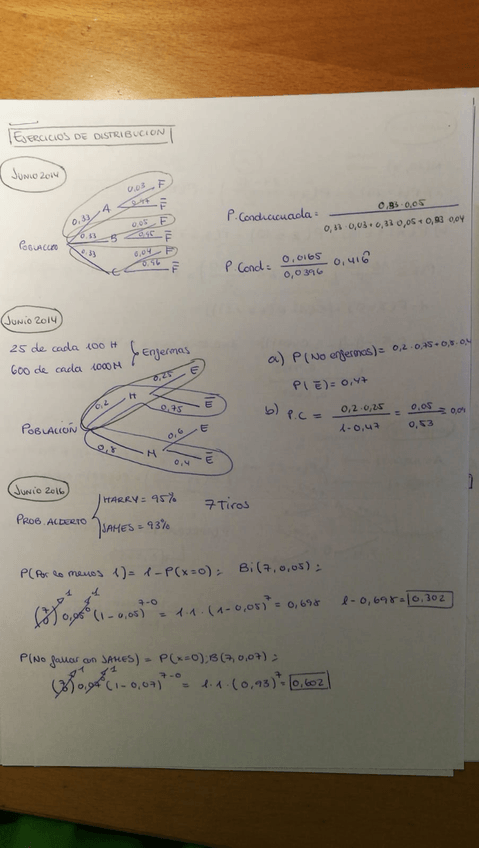 EJERCICIOS DE DISTRIBUCIÓN
JUNIO 2014
POBLACIÓN
0,33 A 0,03 F
0,97 F̅
0,33 B 0,05 F
0,95 F̅
0,33 C 0,04 F
0,96 F̅
P. Condicionada = 0,33 · 0,05 / 0,33 · 0,03 + 0,33 · 0,05 + 0,33 · 0,04
P. Cond = 0,0165 / 0,0396 0,416
JUNIO 2014
25 de cada 100 H
600 de cada 1000 M
Enfermas
POBLACIÓN
0,2 H 0,25 E
0,75 E̅
0,8 M 0,6 E
0,4 E̅
a) P(No enfermos) = 0,2 · 0,75 + 0,8 · 0,4
P(E̅) = 0,47
b) P.C = 0,2 · 0,25 / 1 - 0,47 = 0,05 / 0,53 = 0,09
JUNIO 2016
PROB. ALDERTO
HARRY = 95%
JAMES = 93%
7 Tiros
P(Por lo menos 1) = 1 - P(x=0) = Bi(7, 0,05) =
(7 0) 1 0,05⁰ 1 (1 - 0,05)⁷⁻⁰ = 1 · 1 · (1 - 0,05)⁷ = 0,698 1 - 0,698 = 0,302
P(No fallar con JAMES) = P(x=0); B(7, 0,07) =
(7 0) 1 0,07⁰ 1 (1 - 0,07)⁷⁻⁰ = 1 · 1 · (0,93)⁷ = 0,602